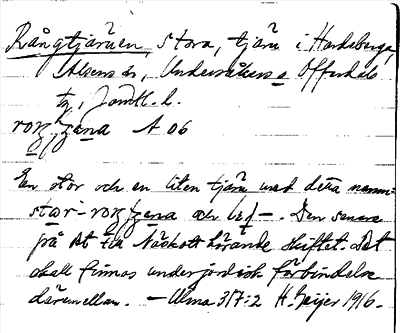 Rångtjärnen, stora, tjärn i Hardeberga,
Alsens sn, Undersåkers o Offerdals
tg, Jämtl. l.
A 06
En stor och en liten tjärn med detta namn:
Den senare
på det till Näskott hörande skiftet. Det
skall finnas underjordisk förbindelse
däremellan. – Ulma 317:2 H. Geijer 1916.